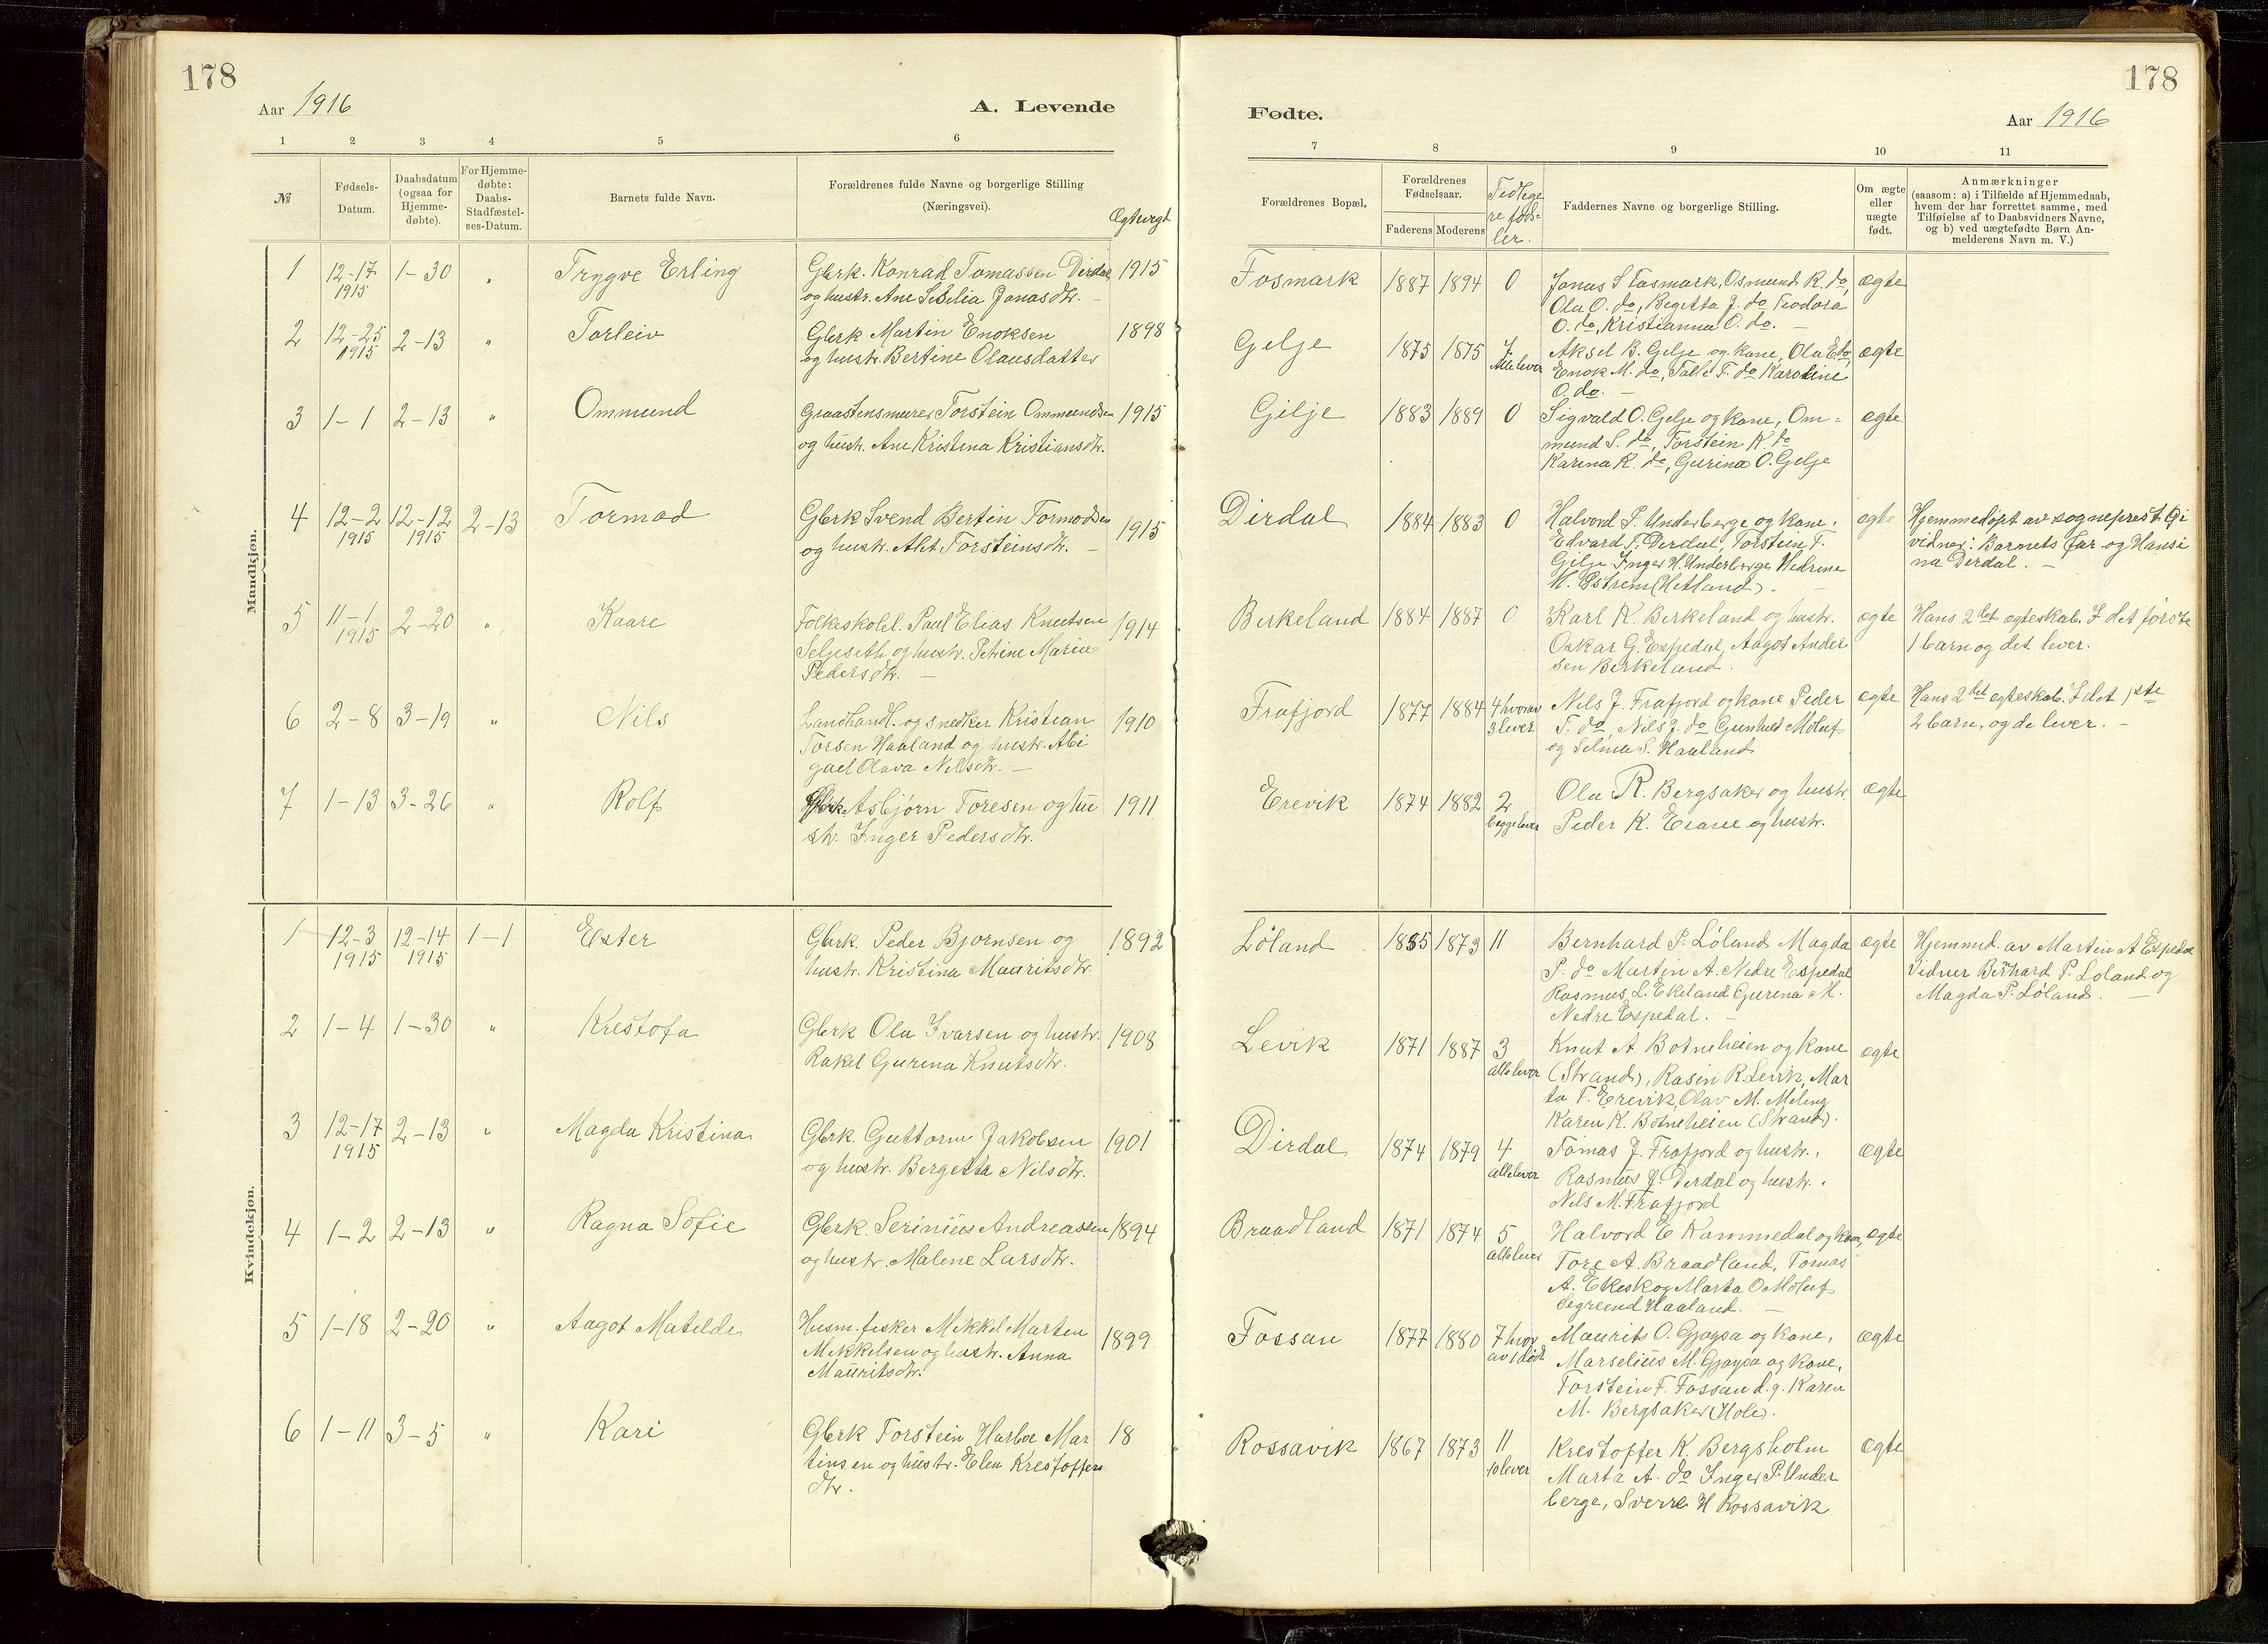 178
Aar 1916
A. Levende
1 2 3 4 5 6
№
Fødsels-
Datum.
Daabsdatum
(ogsaa for
Hjemme-
døbte).
For Hjemme-
døbte:
Daabs-
Stadfæstel-
ses-Datum.
Barnets fulde Navn.
Forældrenes fulde Navne og borgerlige Stilling
(Næringsvei).
Ægtevigt
Mandkjøn.
1 12-17 1-30 " Trygve Erling Gbrk. Konrad Tomassen Dirdal 1915
1915 og hustr. Ane Sesilia Jonasdtr. –
2 12-25 2-13 " Torleiv Gbrk Martin Enoksen 1898
1915 og hustr. Bertine Olausdatter
3 1-1 2-13 " Ommund Graastensmurer Torstein Ommundsen 1915
og hustr. Ane Kristena Kristiansdtr.
4 12-2 12-12 2-13 Tormod Gbrk Svend Bertin Tormodsen 1915
1915 1915 og hustr. Alet Torsteinsdtr. –
5 11-1 2-20 " Kaare Folkeskolel. Paul Elias Knutsen 1914
1915 Seljeseth og hustr. Petrine Marie
Pedersdtr. –
6 2-8 3-19 " Nils Landhandl. og snedker Kristian 1910
Torsen Haaland og hustr. Abi
gael Olava Nilsdtr. –
7 1-13 3-26 " Rolf Gbrk. Asbjørn Toresen og hu 1911
str. Inger Pedersdtr.
Kvindekjøn.
1 12-3 12-14 1-1 Ester Gbrk. Peder Bjornsen og 1892
1915 1915 hustr. Kristina Mauritsdtr.
2 1-4 1-30 " Krestofa Gbrk Ola Ivarsen og hustr. 1908
Rakel Gurena Knutsdtr.
3 12-17 2-13 " Magda Kristina Gbrk. Guttorm Jakobsen 1901
1915 og hustr. Bergetta Nilsdtr.
4 1-2 2-13 " Ragna Sofie Gbrk. Serinius Andreassen 1894
og hustr. Malene Larsdtr.
5 1-18 2-20 " Aagot Matilde Husm. fisker Mikkel Marten 1899
Mikkelsen og hustr. Anna
Mauritsdtr.
6 1-11 3-5 " Kari Gbrk Torstein Harboe Mar 18
tinsen og hustr. Elen Krestoffers
dtr.
178
Fødte.
Aar 1916
7 8 9 10 11
Forældrenes Bopæl.
Forældrenes
Fødselsaar.
Faderens Moderens
Tidlige
re føds=
ler.
Faddernes Navne og borgerlige Stilling.
Om ægte
eller
uægte
født.
Anmærkninger
(saasom: a) i Tilfælde af Hjemmedaab,
hvem der har forrettet samme, med
Tilføielse af to Daabsvidners Navne,
og b) ved uægtefødte Børn An-
melderens Navn m. V.)
Fosmark 1887 1894 0 Jonas S Fosmark, Osmund R. do, ægte
Ola O. do, Begetta J. do Teodora
O. do, Kristianna O. do. –
Gelje 1875 1875 7 Aksel B. Gelje og kone, Ola E do, ægte
Alle lever Enok M. do, Talle T. do Karoline
O. do. –
Gilje 1883 1889 0 Sigvald O. Gelje og kone, Om= ægte
mund S. do, Torstein K. do
Karina K. do, Gurina O. Gelje
Dirdal 1884 1883 0 Halvord T. Underberge og kone, ægte Hjemmedøpt av sogneprest Gi
Edvard T. Derdal, Torstein T. vidner: Barnets far og Hansi
Gilje Inger H. Underberge Hedrene na Dirdal. –
H. Østrem (Hetland).
Berkeland 1884 1887 0 Karl K. Berkeland og hustr. ægte Hans 2det ægteskab. I det første
Oskar G. Espedal, Aagot Ander 1 barn og det lever.
sen Berkeland.
Frafjord 1877 1884 4 hvorav Nils J. Frafjord og kone Peder ægte Hans 2det ægteskab. I det 1ste
3 lever T. do, Nils J. do Gunhild Moluf 2 barn, og de lever. –
og Selma S. Haaland
Erevik 1874 1882 2 Ola R. Bergsaker og hustr. ægte
begge lever Peder K. Erane og hustr.
Løland 1855 1873 11 Bernhard P. Løland Magda ægte Hjemmed. av Martin A Espedal
P. do Martin A. Nedre Espedal Vidner Bernhard P. Løland og
Rasmus L. Ekeland Gurena M. Magda P. Løland. –
Nedre Espedal. –
Levik 1871 1887 3 Knut A Botneheien og Kone ægte
alle lever (Strand), Rasin R. Levik, Mar
ta T. Erevik, Olav M. Meling
Karen K. Botneheien (Strand).
Dirdal 1874 1879 4 Tomas J. Frafjord og hustr., ægte
alle lever Rasmus J. Derdal og hustr.,
Nils M. Frafjord
Braadland 1871 1874 5 Halvord E Kommedal og Kone, ægte
alle lever Tore A. Braadland, Tomas
A. Ekeskog Marta O Moluf
Segreend Haaland. –
Fossan 1877 1880 7 hvor Maurits O. Gjøysa og Kone, ægte
av 1 død Marselius M. Gjøysa og Kone,
Torstein T. Fossan d.y. Karen
M. Bergsaker (Hole).
Rossavik 1867 1873 11 Krestoffer K. Bergsholm ægte
10 lever Marta A. do Inger P. Under
berge, Sverre H Rossavik